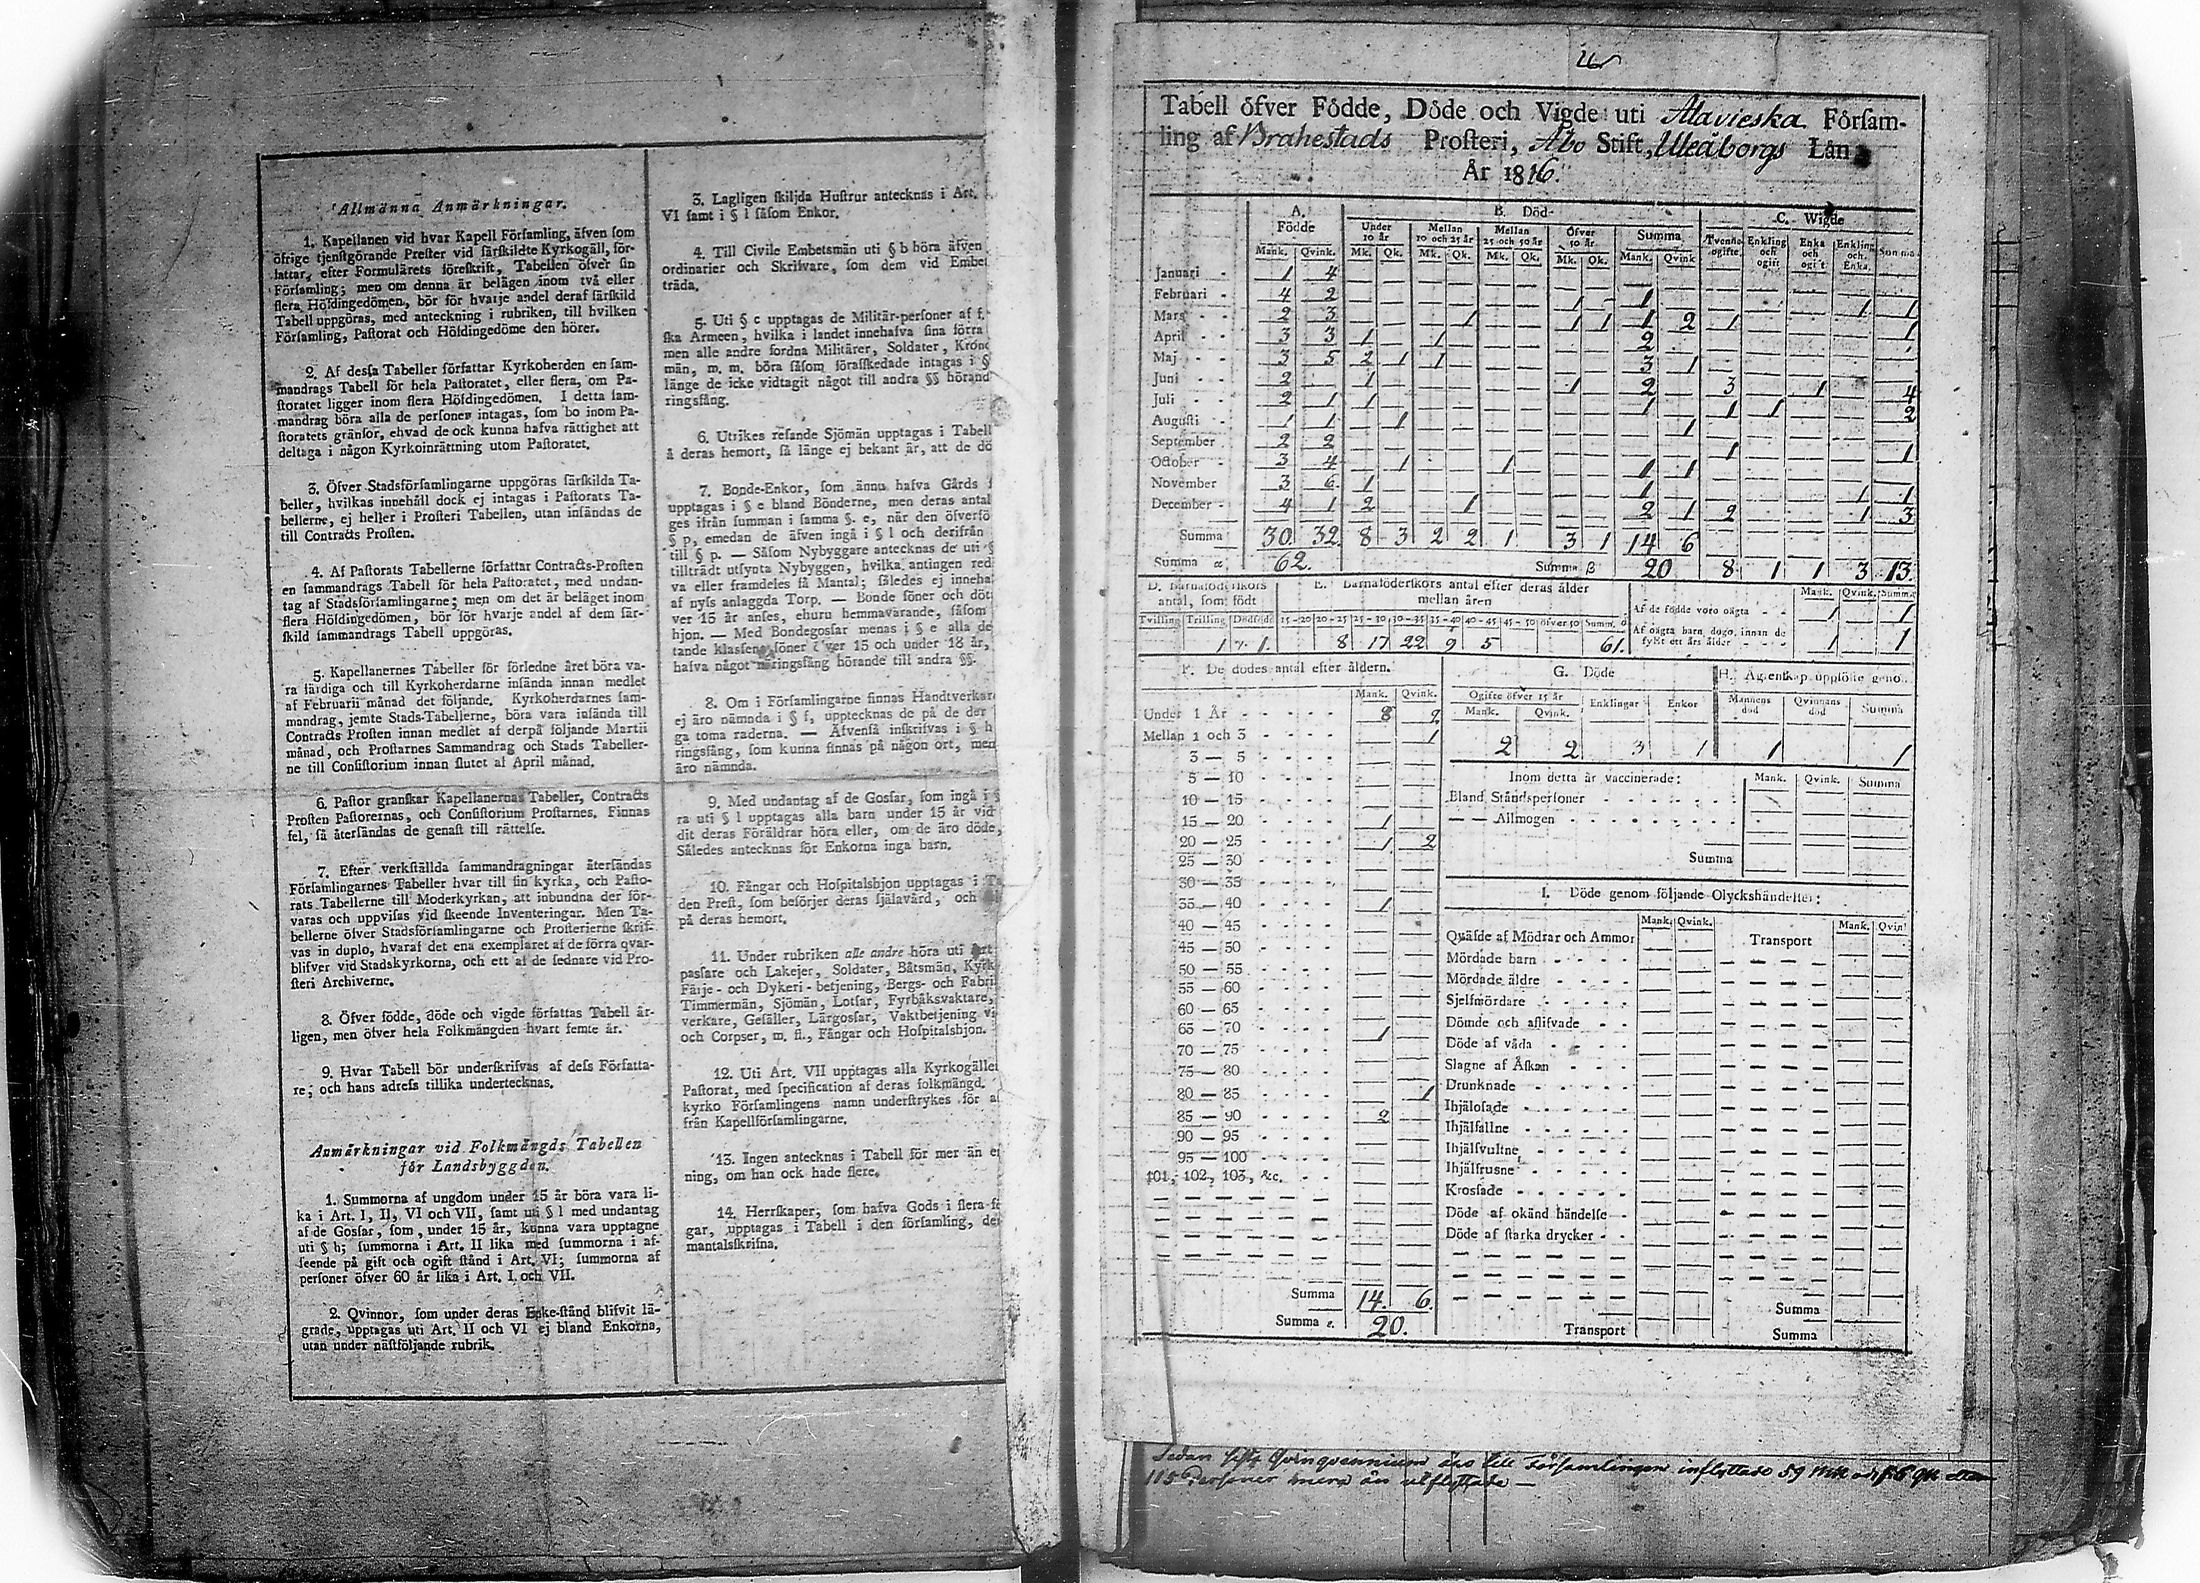 Allmänna Anmärkningar.
1. Kapellanen vid hvar Kapell Förſamling, äfven ſom
öfrige tjenſtgörande Preſter vid ſärſkildte Kyrkogäll, för-
fattar, efter Formulärets föreſkrift, Tabellen öfver ſin
Förſamling; men om denna är belägen inom två eller
flera Höfdingedömen, bör för hvarje andel deraf ſärſkild
Tabell uppgöras, med anteckning i rubriken, till hvilken
Förſamling, Paſtorat och Höfdingedöme den hörer.
2. Af desſa Tabeller författar Kyrkoherden en ſam-
mandrags Tabell för hela Paſtoratet, eller flera, om Pa-
ſtoratet ligger inom flera Höfdingedömen. I detta ſam-
mandrag böra alla de perſoner intagas, ſom bo inom Pa-
ſtoratets gränſor, ehvad de ock kunna hafva rättighet att
deltaga i någon Kyrkoinrättning utom Paſtoratet.
3. Öfver Stadsförſamlingarne uppgöras ſärſkilda Ta-
beller, hvilkas innehåll dock ej intagas i Paſtorats Ta-
bellerne, ej heller i Proſteri Tabellen, utan inſändas de
till Contracts Proſten.
4. Af Paſtorats Tabellerne författar Contracts-Proſten
en ſammandrags Tabell för hela Paſtoratet, med undan-
tag af Stadsförſamlingarne; men om det är beläget inom
flera Höfdingedömen, bör för hvarje andel af dem ſär-
ſkild ſammandrags Tabell uppgöras.
5. Kapellanernes Tabeller för förledne året böra va-
ra färdiga och till Kyrkoherdarne inſända innan medlet
af Februarii månad det följande. Kyrkoherdarnes ſam-
mandrag, jemte Stads-Tabellerne, böra vara inſända till
Contracts Proſten innan medlet af derpå följande Martii
månad, och Proſtarnes Sammandrag och Stads Tabeller-
ne till Conſiſtorium innan ſlutet af April månad.
6. Paſtor granſkar Kapellanernas Tabeller, Contracts
Proſten Paſtorernas, och Conſiſtorium Proſtarnes. Finnas
fel, ſå återſändas de genaſt till rättelſe.
7. Efter verkſtällda ſammandragningar återſändas
Förſamlingarnes Tabeller hvar till ſin kyrka, och Paſto-
rats Tabellerne till Moderkyrkan, att inbundna der för-
varas och uppviſas vid ſkeende Inventeringar. Men Ta-
bellerne öfver Stadsförſamlingarne och Proſterierne ſkrif-
vas in duplo, hvaraf det ena exemplaret af de förra qvar-
bliſver vid Stadskyrkorna, och ett af de ſednare vid Pro-
ſteri Archiverne.
8. Öfver födde, döde och vigde förfſattas Tabell år-
ligen, men öfver hela Folkmängden hvart femte år.
9. Hvar Tabell bör underſkrifvas af deſs Författa-
re; och hans adreſs tillika undertecknas.
Anmärkningar vid Folkmängds Tabellen
för Landsbyggden.
1. Summorna af ungdom under 15 år böra vara li-
ka i Art. I, II, VI och VII, ſamt uti § l med undantag
af de Gosſar, ſom, under 15 år, kunna vara upptagne
uti § h; ſummorna i Art. II lika med ſummorna i af-
ſeende på gift och ogift ſtånd i Art. VI; ſummorna af
perſoner öfver 60 år lika i Art. I och VII.
2. Qvinnor, ſom under deras Enke-ſtånd bliſvit lä-
grade, upptagas uti Art. II och VI ej bland Enkorna,
utan under näſtföljande rubrik.
3. Lagligen ſkiljda Huſtrur antecknas i Art.
VI ſamt i § l ſåſom Enkor.
4. Till Civile Embetsmän uti § b höra äfven
ordinarier och Skrifvare, ſom dem vid Embet
träda.
5. Uti § c upptagas de Militär-perſoner af f.
ſka Armeen, hvilka i landet innehafva ſina förra
men alle andre fordna Militärer, Soldater, Krono
män, m. m. böra ſåſom förafſkedade intagas i §
länge de icke vidtagit något till andra §§ hörand
ringsfång.
6. Utrikes reſande Sjömän upptagas i Tabell
å deras hemort, ſå länge ej bekant är, att de dö
7. Bonde-Enkor, ſom ännu hafva Gårds
upptagas i § e bland Bönderne, men deras antal
ges ifrån ſumman i ſamma §. e, när den öfverfö
§ p, emedan de äfven ingå i § l och derifrån
till § p. — Såſom Nybyggare antecknas de uti §
tillträdt utſynta Nybyggen, hvilka antingen red
va eller framdeles få Mantal; ſåledes ej inneha
af nyſs anlaggda Torp. — Bonde ſöner och döt
ver 15 år anſes, ehuru hemmavarande, ſåſom
hjon. — Med Bondegosſar menas i § e alla de
tande klasſens ſöner öfver 15 och under 18 år,
hafva något näringsfång hörande till andra §§.
8. Om i Förſamlingarne finnas Handtverkare
ej äro nämnda i § f, upptecknas de på de der
ga toma raderna. — Äfvenſå inſkrifvas i § h
ringsfång, ſom kunna finnas på någon ort, men
äro nämnda.
9. Med undantag af de Gosſar, ſom ingå i §
ra uti § l upptagas alla barn under 15 år vid
dit deras Föräldrar höra eller, om de äro döde,
Således antecknas för Enkorna inga barn.
10. Fångar och Hoſpitalshjon upptagas i Ta
den Preſt, ſom beſörjer deras ſjälavård, och
på deras hemort.
11. Under rubriken alle andre höra uti Art
pasſare och Lakejer, Soldater, Båtsmän, Kyrk
Färje- och Dykeri-betjening, Bergs- och Fabri
Timmermän, Sjömän, Lotſar, Fyrbåksvaktare,
verkare, Geſäller, Lärgosſar, Vaktbetjening vi
och Corpſer, m. fl., Fångar och Hoſpitalshjon.
12. Uti Art. VII upptagas alla Kyrkogället
Paſtorat, med ſpecification af deras folkmängd.
kyrko Förſamlingens namn underſtrykes för at
från Kapellförſamlingarne.
13. Ingen antecknas i Tabell för mer än en
ning, om han ock hade flere.
14. Herrſkaper, ſom hafva Gods i flera fö
gar, upptagas i Tabell i den förſamling, der
mantalsſkrifna.
Tabell öfver Födde, Döde och Vigde uti Alavieska Förſam-
ling af Brahestads Proſteri, Åbo Stift, Uleåborgs Län
År 1816.
A. Födde B. Död- C. Wigde
Under 10 år Mellan 10 och 25 år Mellan 25 och 50 år Öfver 50 år Summa Tvenne ogifte Enkling och ogift Enka och ogift Enkling och Enka Summa
Mank. Qvink. Mk. Qk. Mk. Qk. Mk. Qk. Mk. Qk. Mank. Qvink
Januari - 1 4
Februari - 4 2 1 1 1 1
Mars - 2 3 1 1 1 1 2 1 1
April - - 3 3 1 1 2
Maj - - 3 5 2 1 1 3 1
Juni - - 2 1 1 2 3 1 4
Juli - - 2 1 1 1 1 1 2
Auguſti - 1 1 1 1
September 2 2 1 1
October - 3 4 1 1 1 1
November 3 6 1 1 1 1
December - 4 1 2 1 2 1 2 1 3
Summa 30 32 8 3 2 2 1 3 1 14 6
Summa α 62. Summa β 20 8 1 1 3 13.
D. Barnaföderſkors antal, ſom födt
Tvilling Trilling Dödfödt
1 1.
E. Barnaföderſkors antal efter deras ålder mellan åren
15-20 20-25 25-30 30-35 35-40 40-45 45-50 öfver 50 Summ. δ
8 17 22 9 5 61.
Mank. Qvink. Summa
Af de födde voro oägta - - 1 1
Af oägta barn dogo innan de fyllt ett års ålder - - - 1 1
F. De dödes antal efter åldern.
Mank. Qvink.
Under 1 År - - - - - 8 2
Mellan 1 och 3 - - - - 1
3 — 5 - - - -
5 — 10 - - - -
10 — 15 - - - -
15 — 20 - - - - 1
20 — 25 - - - - 1 2
25 — 30 - - - -
30 — 35 - - - -
35 — 40 - - - - 1
40 — 45 - - - -
45 — 50 - - - -
50 — 55 - - - -
55 — 60 - - - -
60 — 65 - - - -
65 — 70 - - - - 1
70 — 75 - - - -
75 — 80 - - - -
80 — 85 - - - - 1
85 — 90 - - - - 2
90 — 95 - - - -
95 — 100 - - - -
101, 102, 103, &c. - -
Summa 14. 6.
Summa ε. 20.
G. Döde
Ogifte öfver 15 år Enklingar Enkor
Mank. Qvink.
2 2 3 1
H. Ägtenſkap upplöſte genom
Mannens död Qvinnans död Summa
1 1
Inom detta år vaccinerade: Mank. Qvink. Summa
Bland Ståndsperſoner - - - -
— — Allmogen - - - -
Summa
I. Döde genom följande Olyckshändelſer:
Mank. Qvink. Transport Mank. Qvin
Qväfde af Mödrar och Ammor
Mördade barn - - - -
Mördade äldre - - - -
Sjelfmördare - - - -
Dömde och aflifvade - -
Döde af våda - - - -
Slagne af Åſkan - - -
Drunknade - - - -
Ihjäloſade - - - -
Ihjälfallne - - - -
Ihjälfvultne - - - -
Ihjälfrusne - - - -
Krosſade - - - -
Döde af okänd händelſe -
Döde af ſtarka drycker - -
Transport
Summa
Summa
Sedan sista Qvinqvennium äro till Församlingen inflyttade 59 Mk och 56 Qk eller
115 Personer mera än utflyttade —